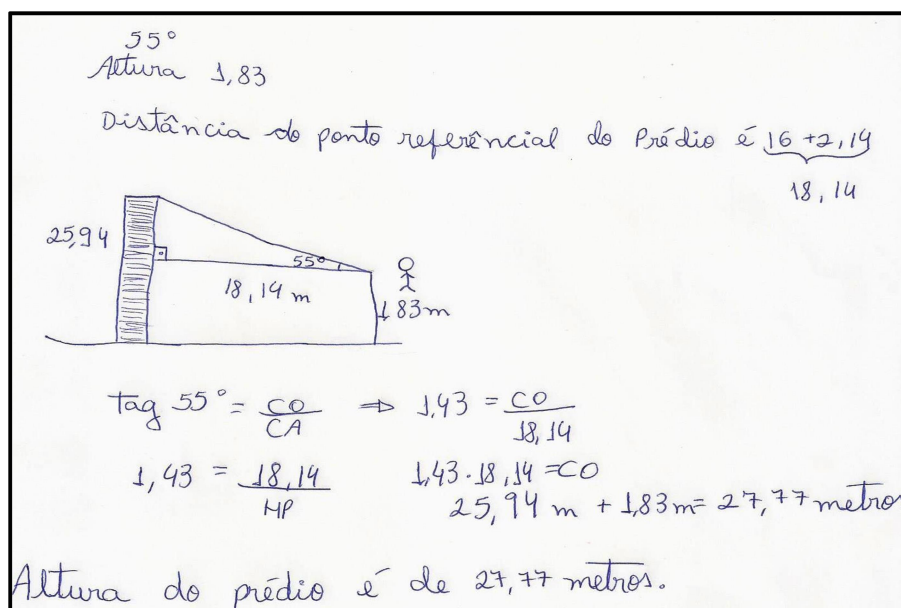 55°
Altura 1,83
Distância do ponto referêncial do Prédio é 16 + 2,14
18,14
25,94
55°
18,14 m
1,83 m
Tag 55° = CO/CA ⇒ 1,43 = CO/18,14
1,43 = 18,14/HP 1,43 . 18,14 = CO
25,94 m + 1,83 m = 27,77 metro
Altura do prédio é de 27,77 metros.